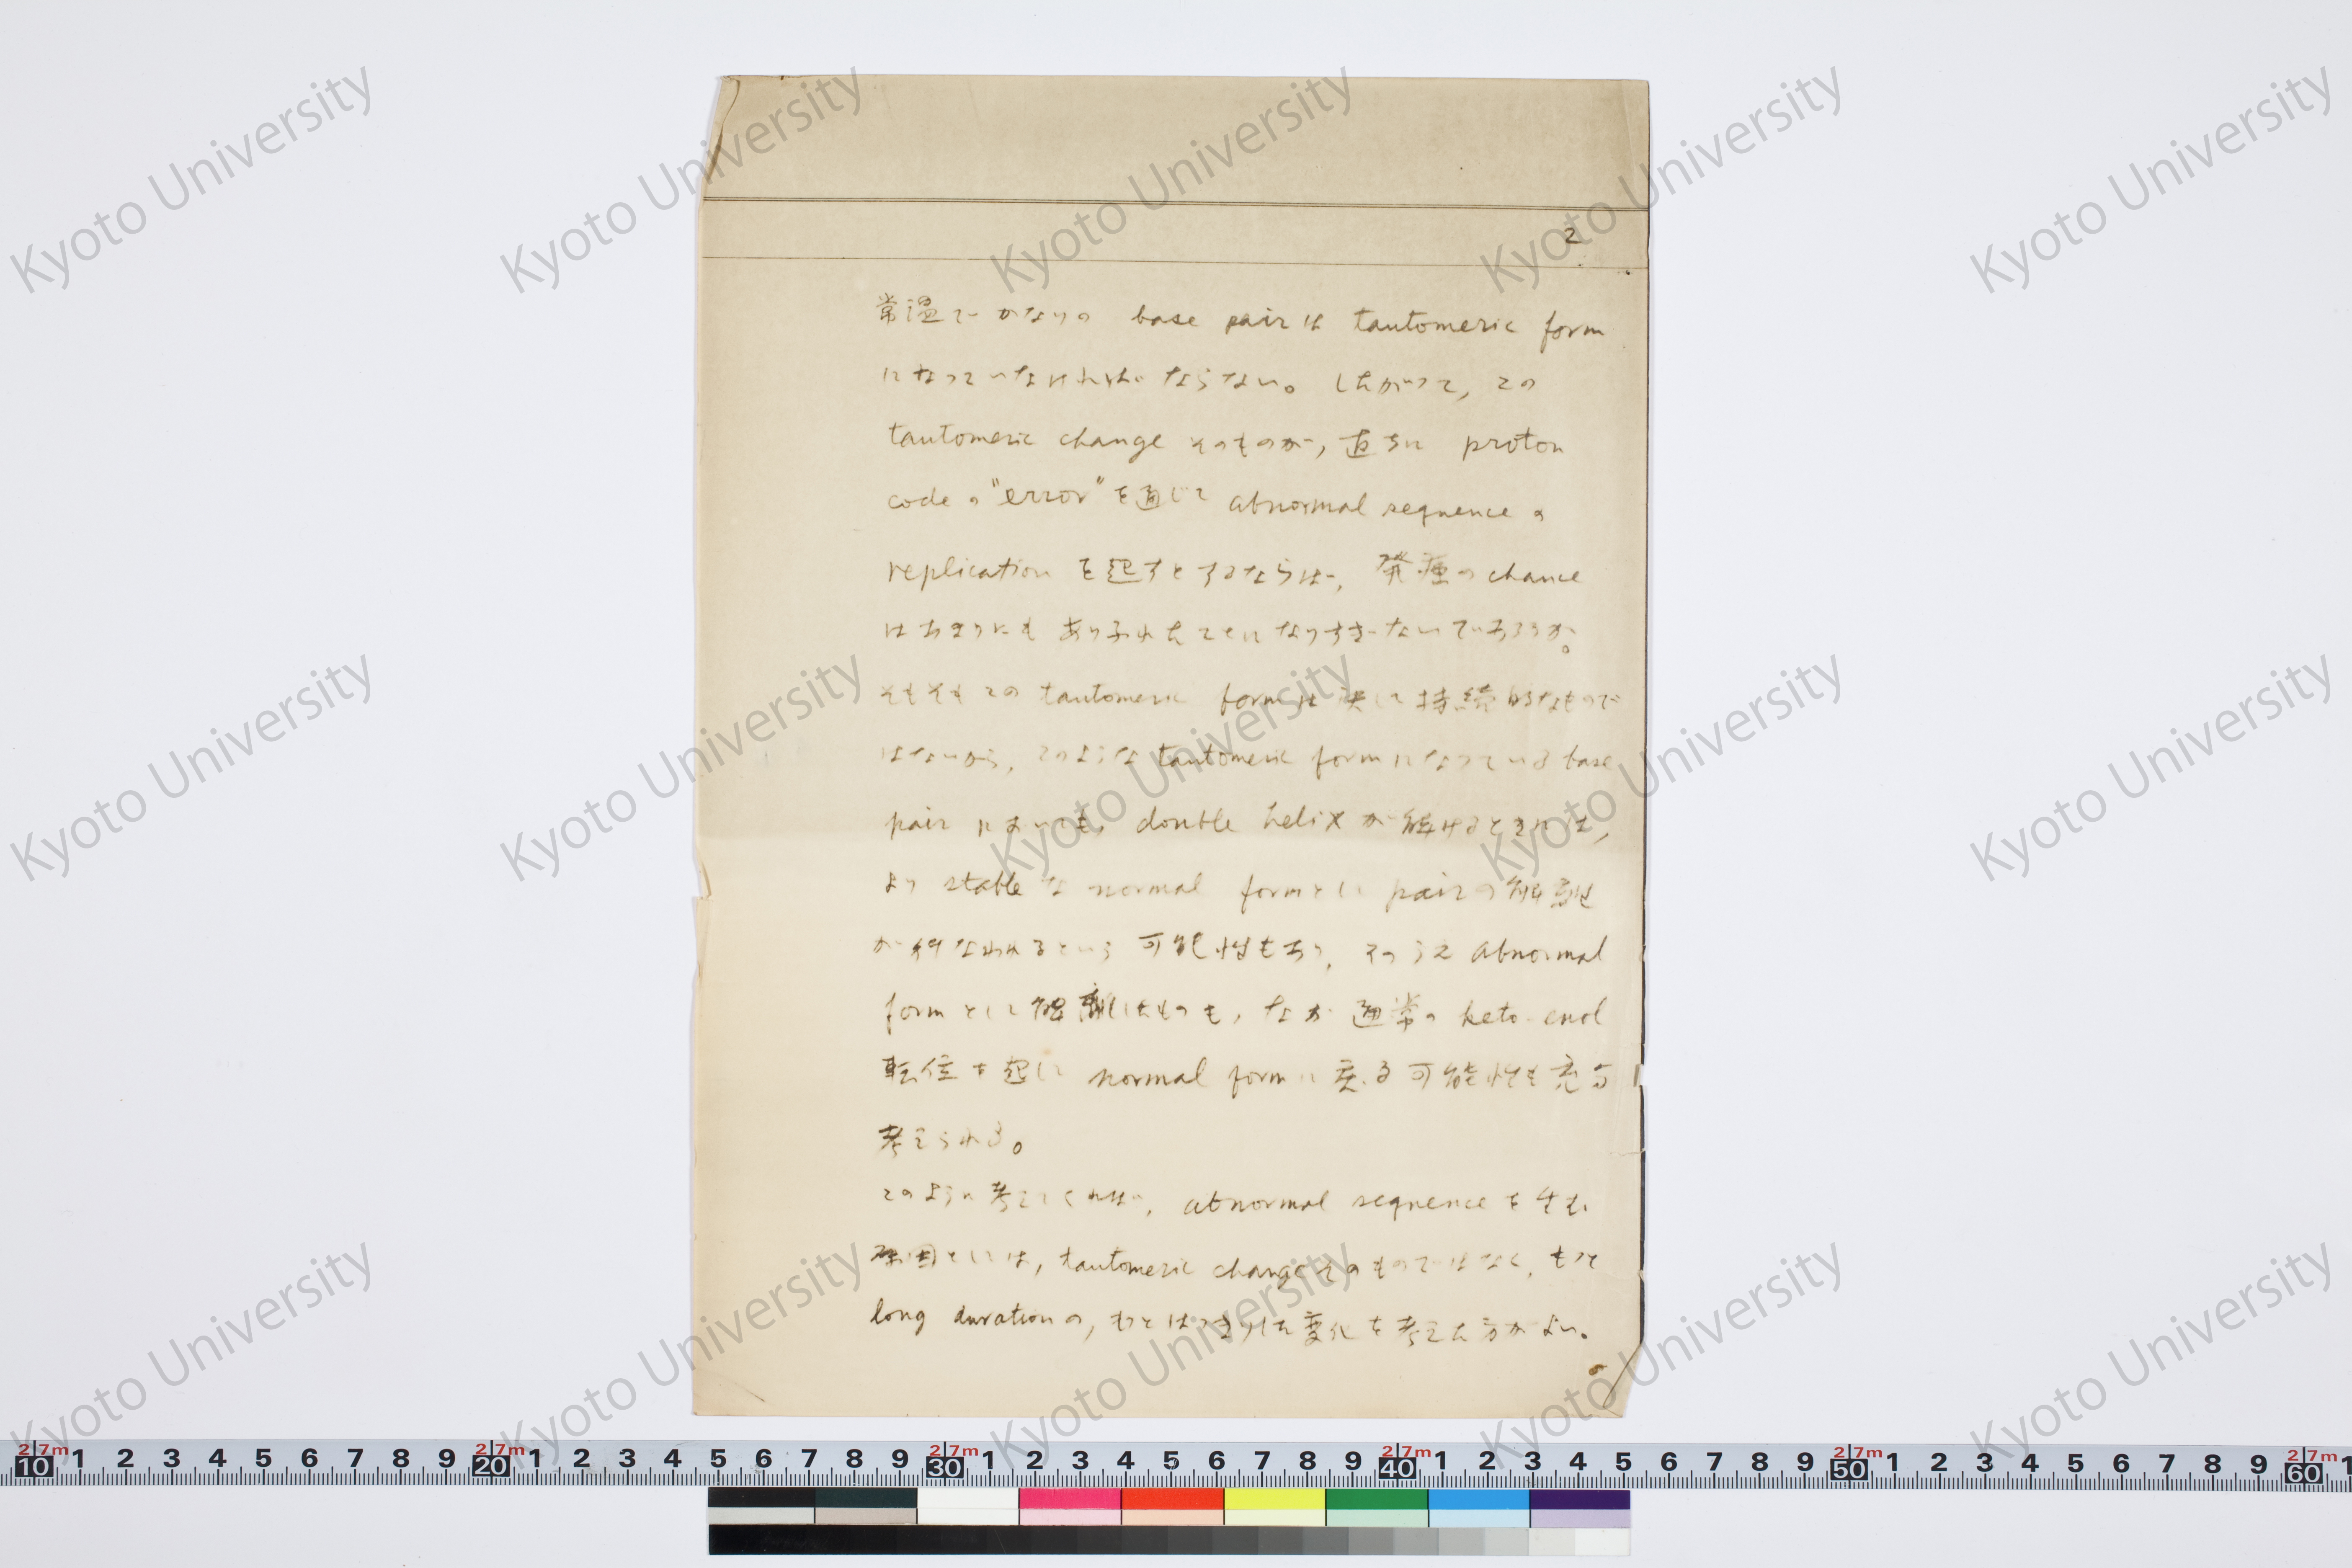 2
常温で かなりの base pair は tautomeric form
になっていなければならない。したがって, この
tautomeric change そのものが, 直ちに proton
code の "error" を通じて abnormal sequence の
replication を起すとするならば, 発癌の chance
はあまりにも ありふれたことになりすぎないであろうか。
そもそもこの tautomeric form は決して持続的なもので
はないから, このような tautomeric form になっている base
pair においても, double helix が解けるときには,
より stable な normal form として pair の解離
が行なわれるという可能性もあり, そのうえ abnormal
form として解離したものも, なお 通常の keto-enol
転位を起して normal form に戻る可能性も充分
考えられる。
このように考えてくれば, abnormal sequence を生む
原因としては, tautomeric change そのものではなく, もっと
long duration の, もっとはっきりした変化を考えた方がよい。
Kyoto University
2.7m 10 1 2 3 4 5 6 7 8 9 2.7m 20 1 2 3 4 5 6 7 8 9 2.7m 30 1 2 3 4 5 6 7 8 9 2.7m 40 1 2 3 4 5 6 7 8 9 2.7m 50 1 2 3 4 5 6 7 8 9 2.7m 60 1